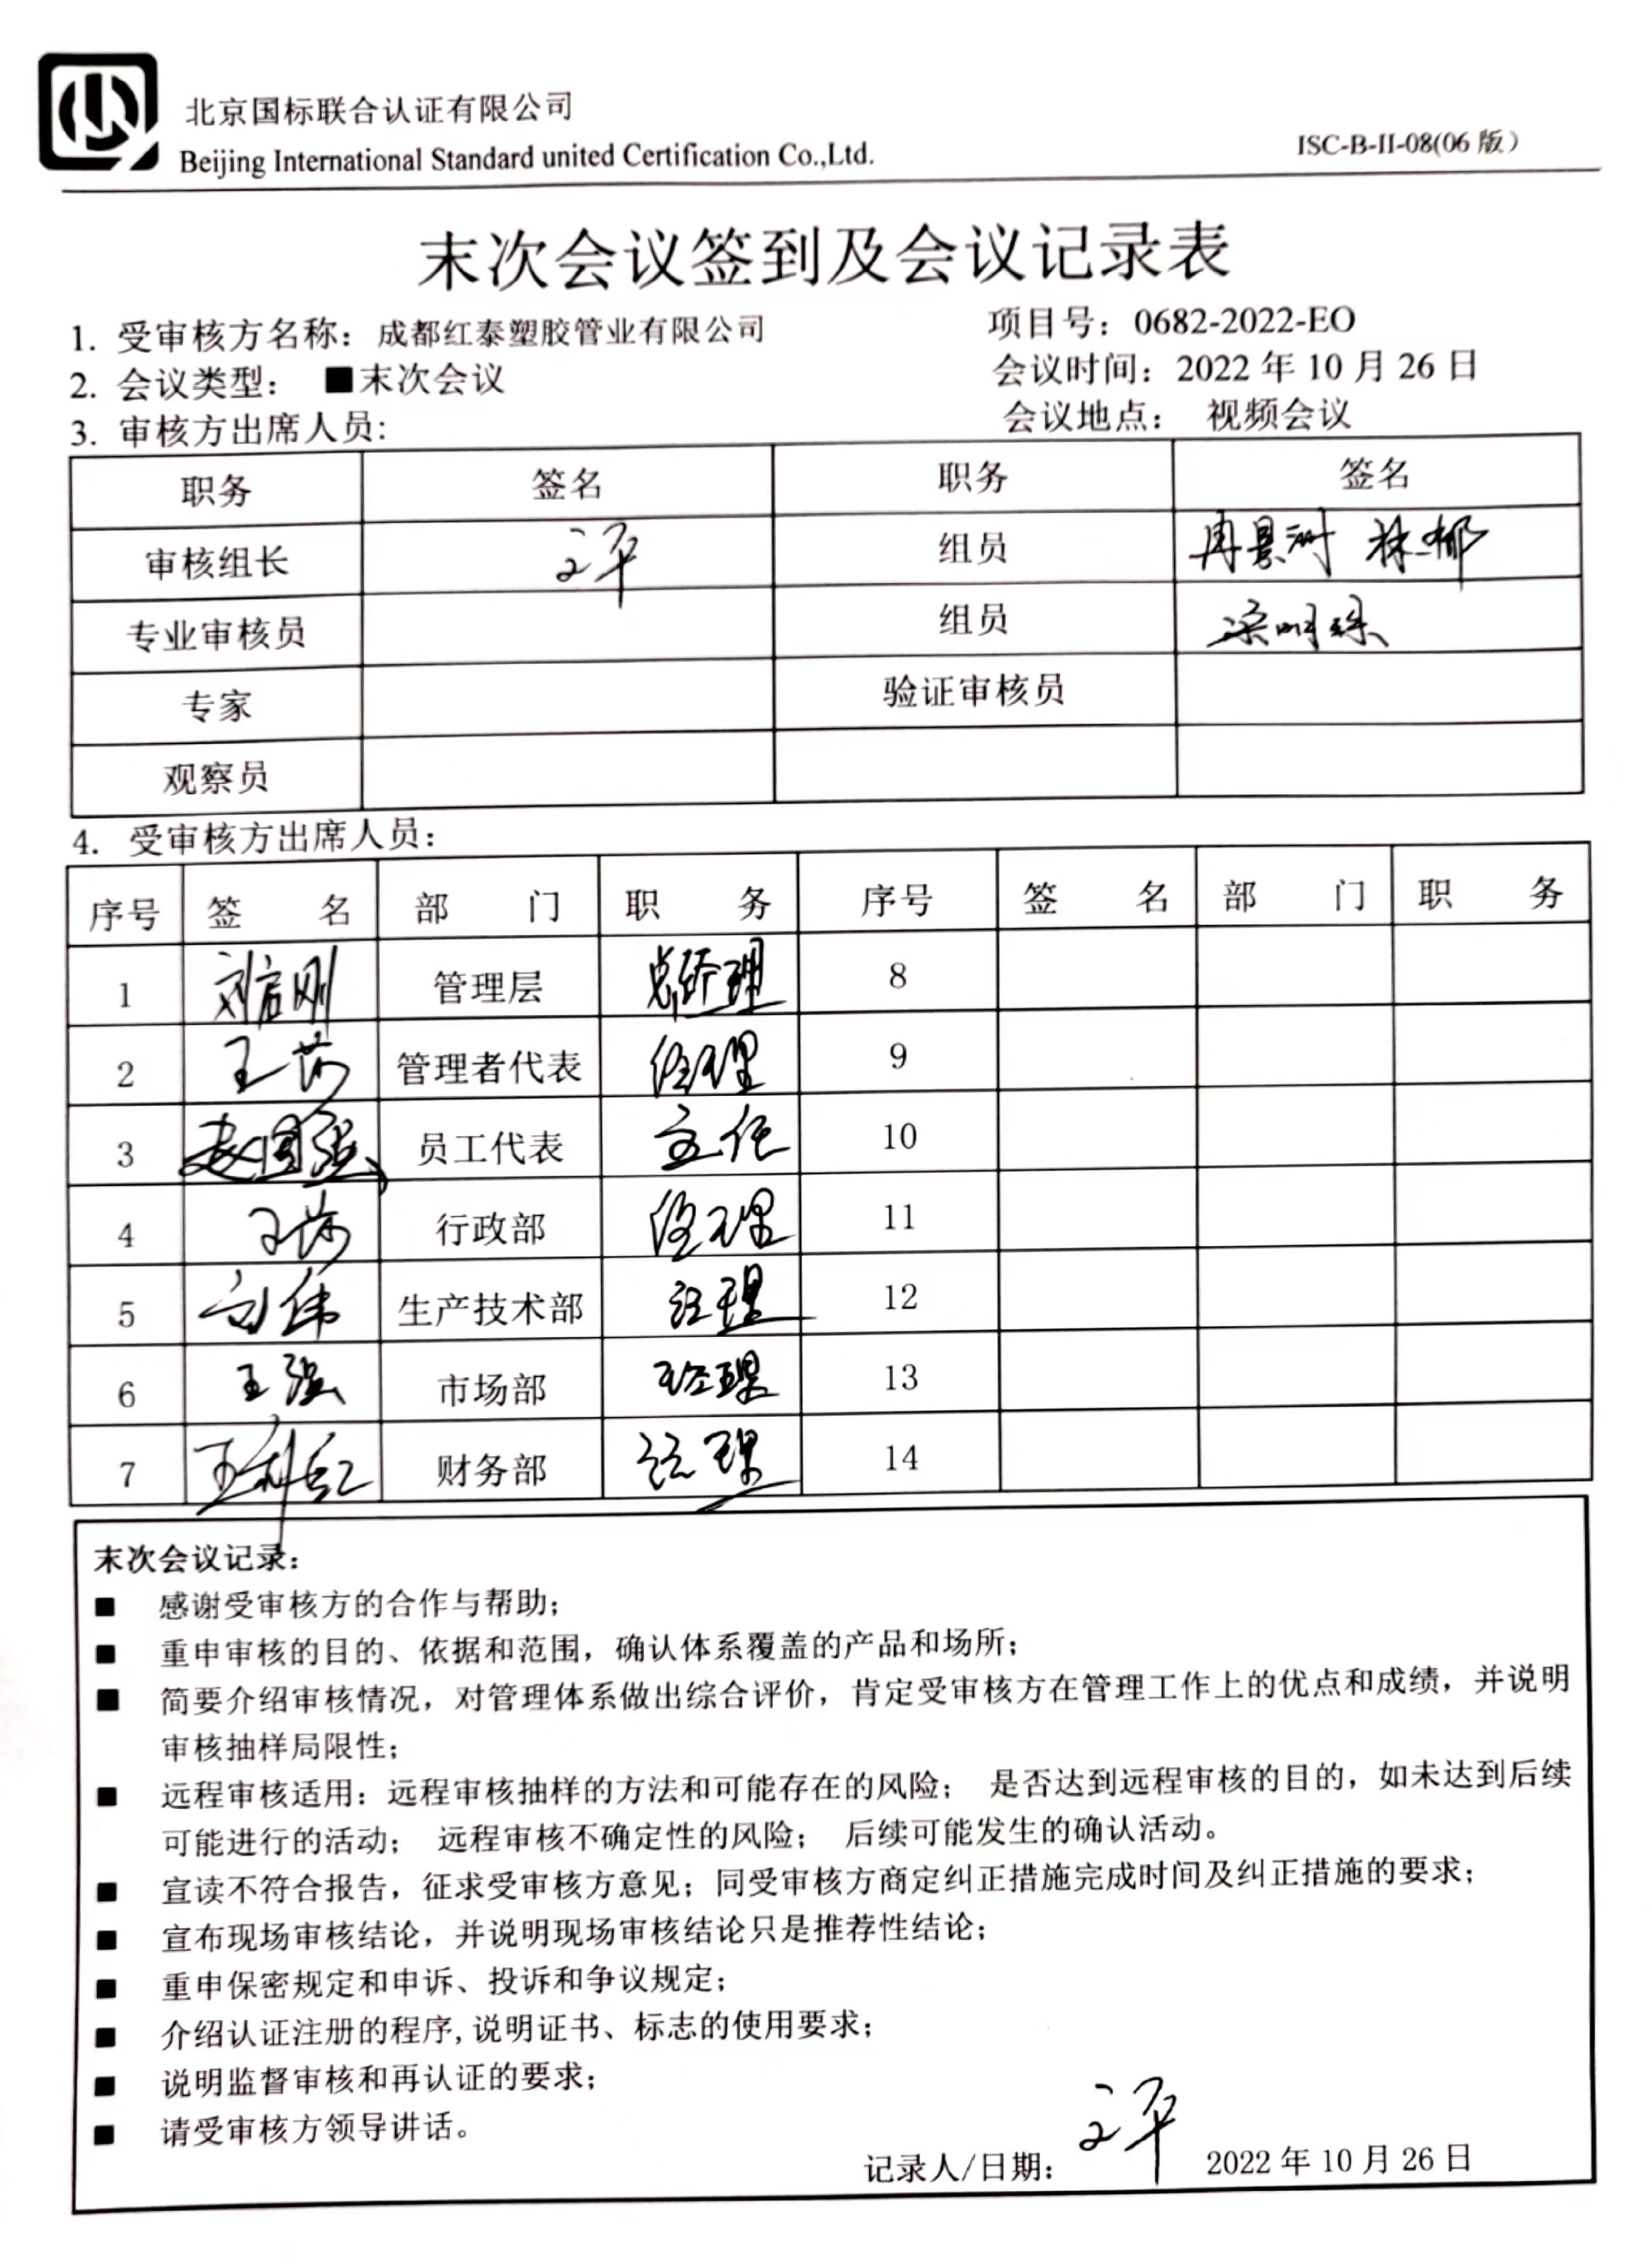 北京国标联合认证有限公司
Beijing International Standard united Certification Co.,Ltd.
ISC-B-II-08(06 版)
末次会议签到及会议记录表
1. 受审核方名称：成都红泰塑胶管业有限公司 项目号：0682-2022-EO
2. 会议类型： ■末次会议 会议时间：2022 年 10 月 26 日
3. 审核方出席人员： 会议地点： 视频会议
职务 签名 职务 签名
审核组长 组员
专业审核员 组员 梁明珠
专家 验证审核员
观察员
4. 受审核方出席人员：
序号 签 名 部 门 职 务 序号 签 名 部 门 职 务
1 管理层 总经理 8
2 王莎 管理者代表 经理 9
3 赵国强 员工代表 主任 10
4 王莎 行政部 经理 11
5 生产技术部 经理 12
6 王强 市场部 经理 13
7 财务部 经理 14
末次会议记录：
■ 感谢受审核方的合作与帮助；
■ 重申审核的目的、依据和范围，确认体系覆盖的产品和场所；
■ 简要介绍审核情况，对管理体系做出综合评价，肯定受审核方在管理工作上的优点和成绩，并说明
审核抽样局限性；
■ 远程审核适用：远程审核抽样的方法和可能存在的风险； 是否达到远程审核的目的，如未达到后续
可能进行的活动； 远程审核不确定性的风险； 后续可能发生的确认活动。
■ 宣读不符合报告，征求受审核方意见；同受审核方商定纠正措施完成时间及纠正措施的要求；
■ 宣布现场审核结论，并说明现场审核结论只是推荐性结论；
■ 重申保密规定和申诉、投诉和争议规定；
■ 介绍认证注册的程序,说明证书、标志的使用要求；
■ 说明监督审核和再认证的要求；
■ 请受审核方领导讲话。
记录人/日期： 2022 年 10 月 26 日